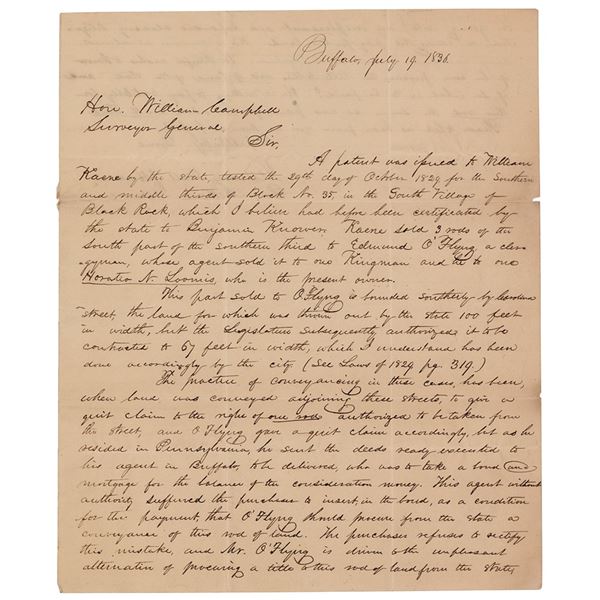 Buffalo, July 19. 1836
Hon. William Campbell
Surveyor General
Sir,
A patent was issued to William
Kaene by the state, tested the 29th day of October 1829 for the Southern
and middle thirds of Block No. 35, in the South Village of
Black Rock, which I believe had before been certificated by
the state to Benjamin Knower. Kaene sold 3 rods of the
South part of the Southern third to Edmund O'Flyng a cler-
gyman, whose agent sold it to one Kingman and he to one
Horatio N. Loomis, who is the present owner.
This part sold to O'Flyng is bounded southerly by Carolina
street, the land for which was thrown out by the state 100 feet
in width, but the Legislature subsequently authorized it to be
contracted to 67 feet in width, which I understand has been
done accordingly by the city. (See Laws of 1824 pg. 319.)
The practice of conveyancing in these cases, has been,
when land was conveyed adjoining these streets, to give a
quit claim to the right of one rod authorized to be taken from
the street, and O'Flyng gave a quit claim accordingly, but as he
resided in Pennsylvania, he sent the deeds ready executed to
his agent in Buffalo, to be delivered, who was to take a bond and
mortgage for the balance of the consideration money. This agent without
authority suffered the purchaser to insert, in the bond, as a condition
for the payment, that O'Flyng should procure from the state a
conveyance of this rod of land. The purchaser refuses to rectify
this mistake, and Mr. O'Flyng is driven to the unpleasant
alternative of procuring a title to this rod of land from the State,